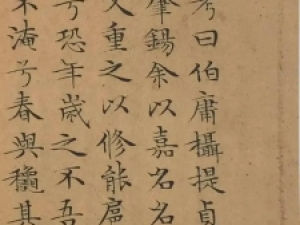 考曰伯庸攝提貞
肇錫余以嘉名名
又重之以修能扈
兮恐年歲之不吾
不淹兮春與龝其